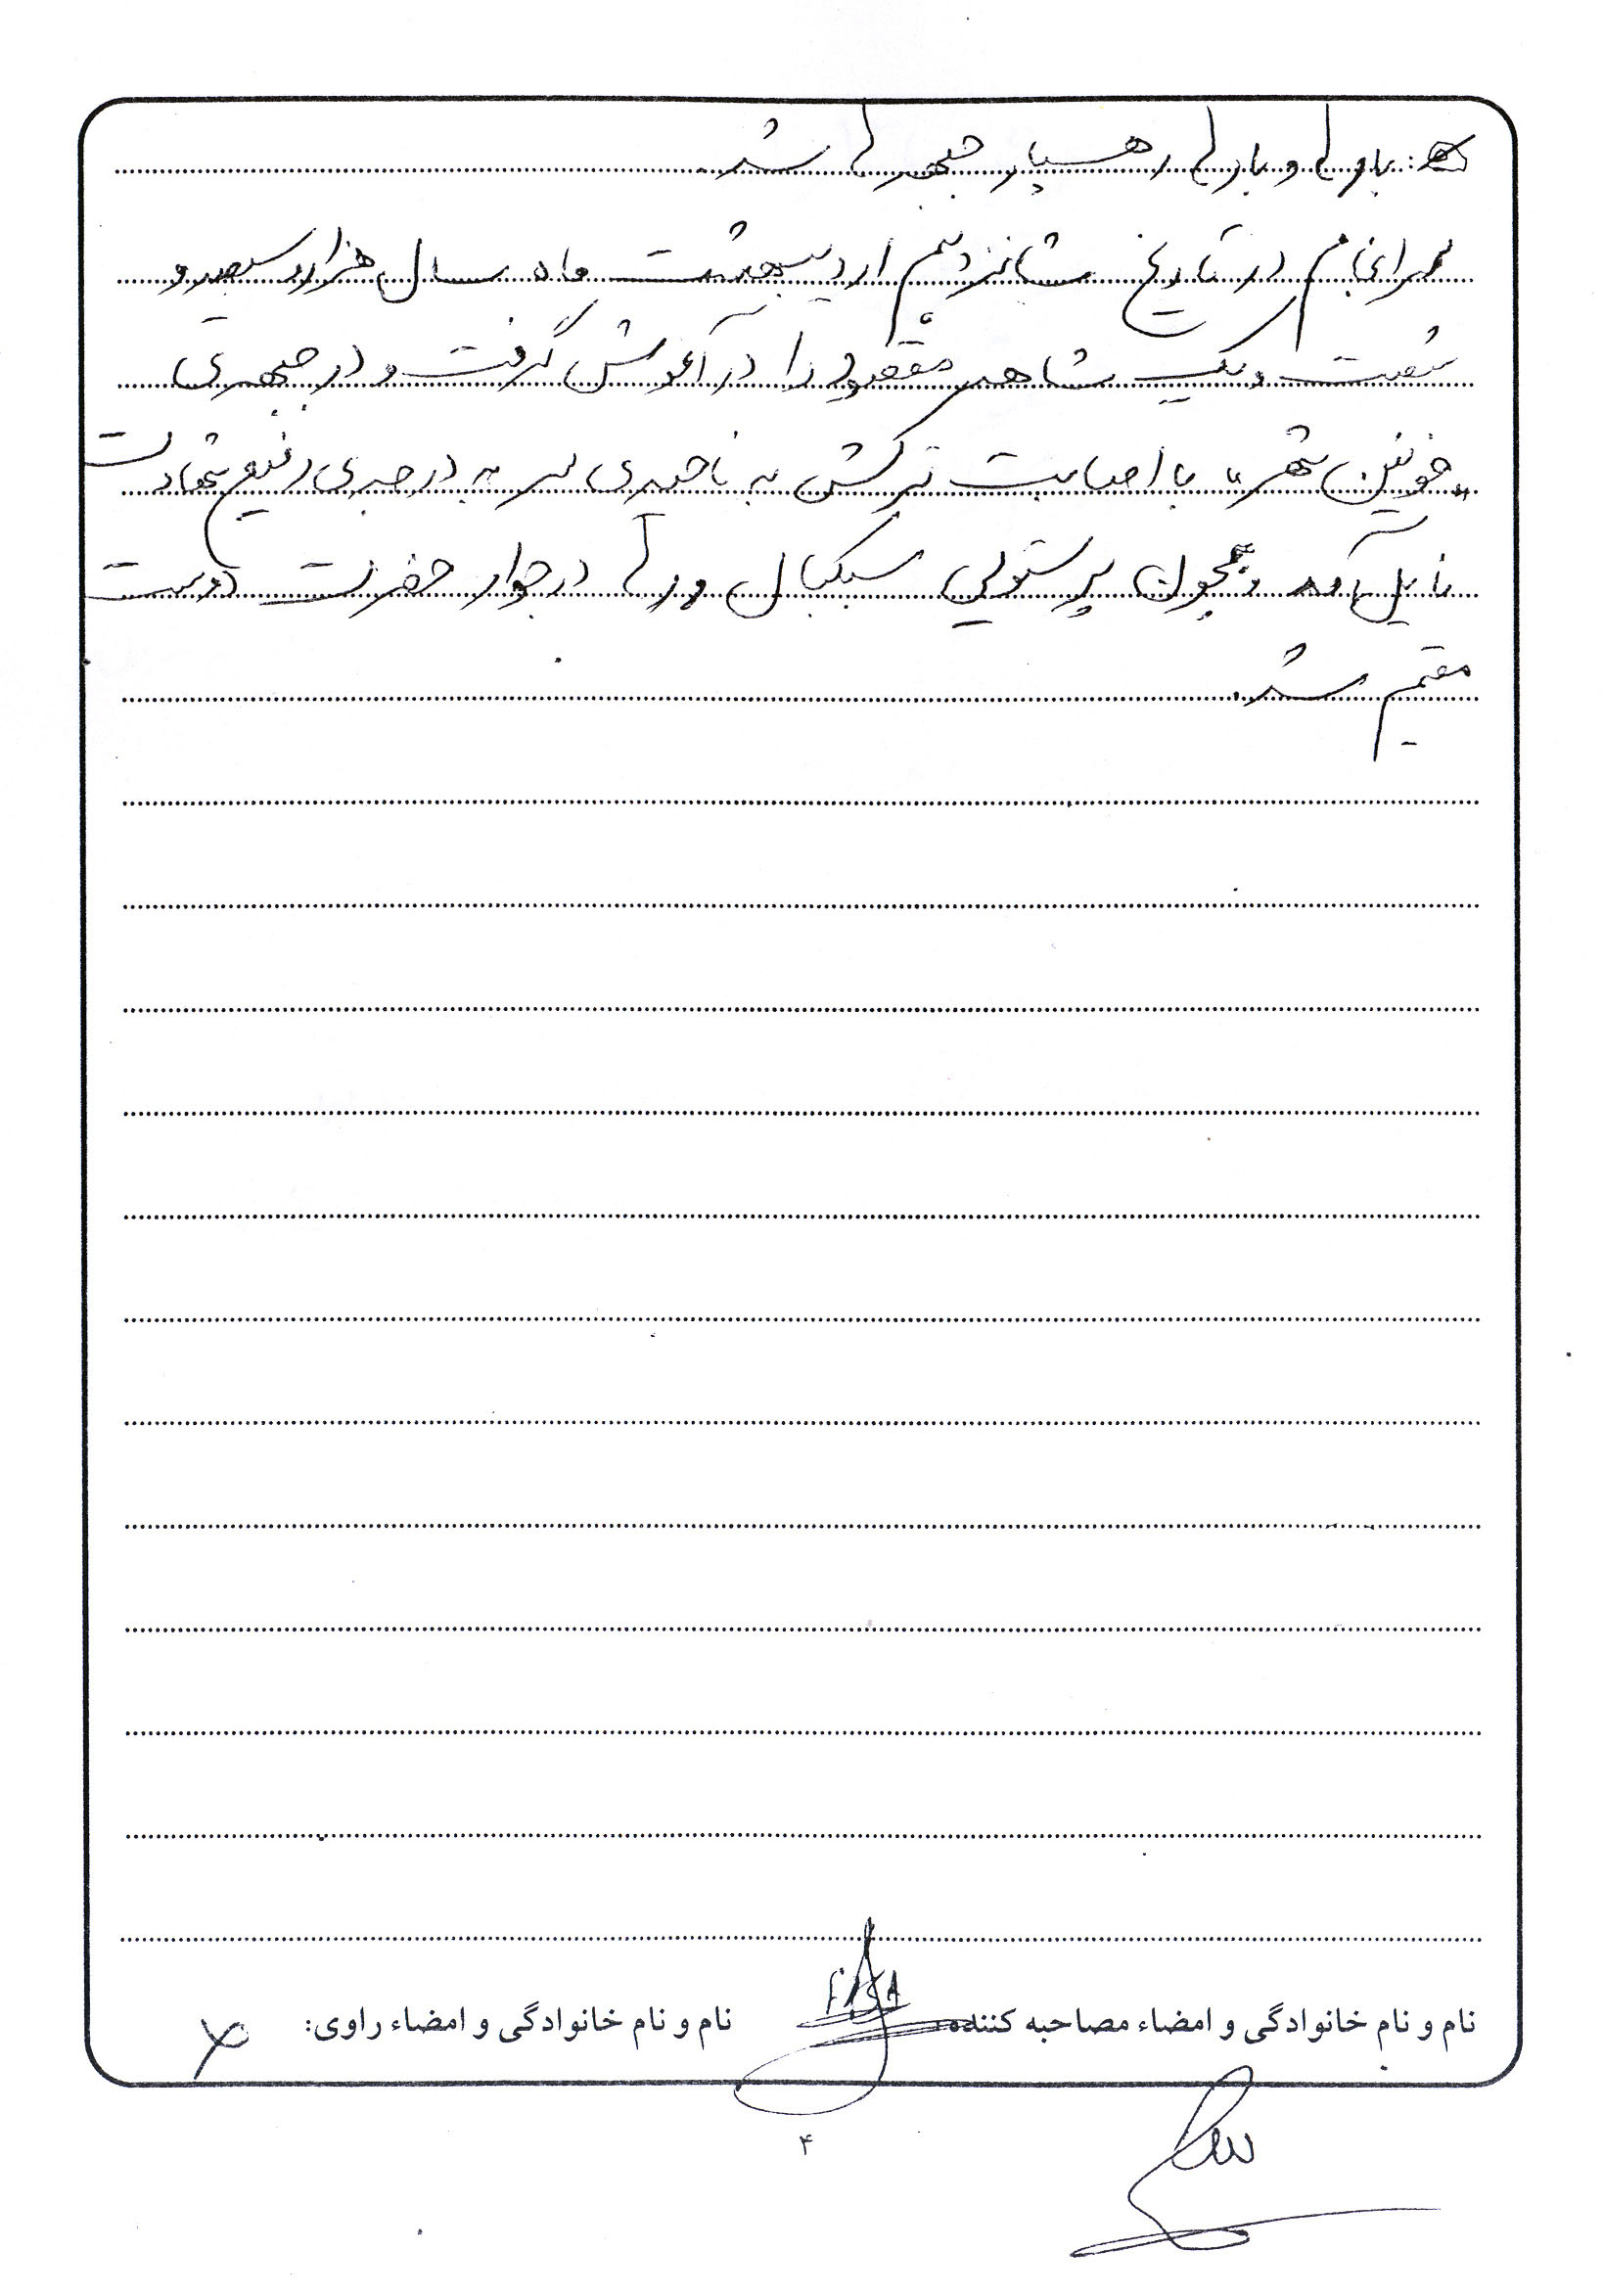 : بارها و بارها رهسپار جبهه‌ها شد.
سرانجام در تاریخ شانزدهم اردیبهشت ماه سال هزار و سیصد و
شصت و یک شاهد مقصود را در آغوش گرفت و در جبهه‌ی
«خونین شهر» با اصابت ترکش به ناحیه‌ی سر به درجه‌ی رفیع شهادت
نایل آمد و همچون پرستویی سبکبال و رها در جوار حضرت دوست
مقیم شد.
نام و نام خانوادگی و امضاء مصاحبه کننده: نام و نام خانوادگی و امضاء راوی:
۴